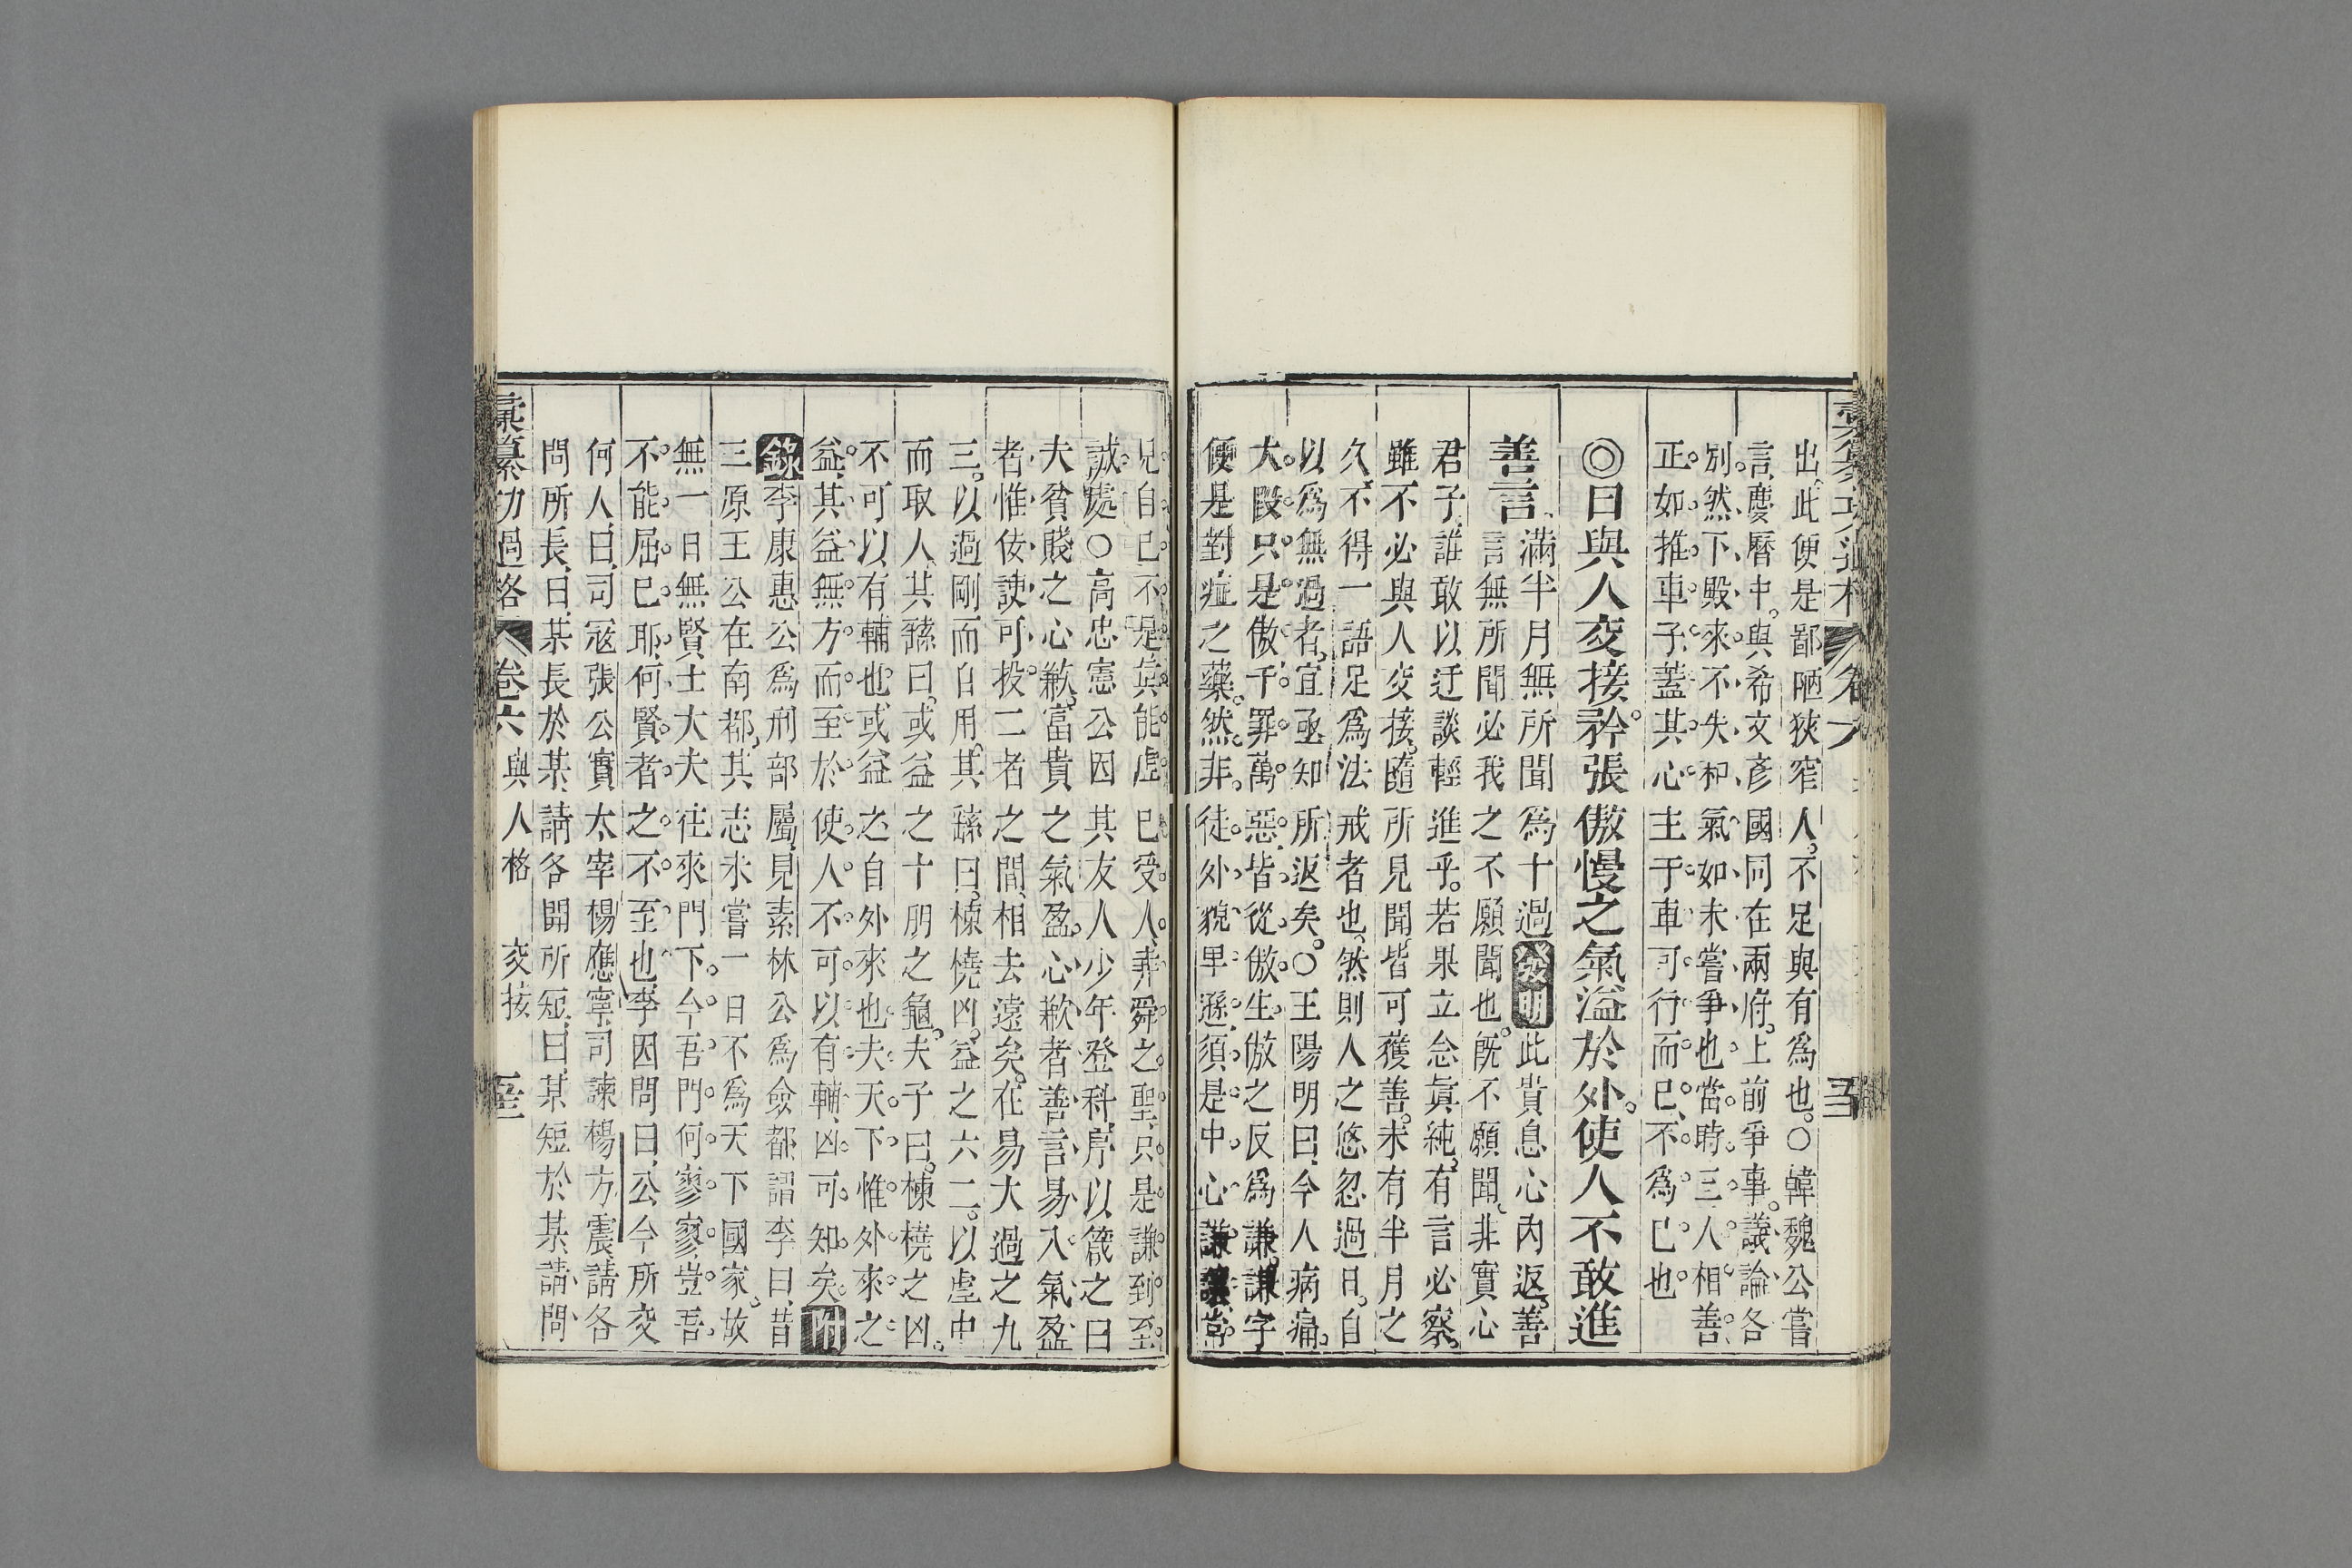 出此便是鄙陋狹窄人不足與有爲也○韓魏公嘗
言慶曆中與希文彥國同在兩府上前爭事議論各
別然下殿來不失和氣如未嘗爭也當時三人相善
正如推車子蓋其心主于車可行而已不爲己也
◎日與人交接矜張傲慢之氣溢於外使人不敢進
善言
滿半月無所聞爲十過發明此貴息心內返善
言無所聞必我之不願聞也旣不願聞非實心
君子誰敢以迂談輕進乎若果立念眞純有言必察
雖不必與人交接隨所見聞皆可獲善未有半月之
久不得一語足爲法戒者也然則人之悠忽過日自
以爲無過者宜亟知所返矣○王陽明曰今人病痛
大段只是傲千罪萬惡皆從傲生傲之反爲謙謙字
便是對症之藥然非徒外貌卑遜須是中心謙讓常
見自己不是眞能虛已受人舜之聖只是謙到至
誠處○高忠憲公因其友人少年登科序以箴之曰
夫貧賤之心歉富貴之氣盈心歉者善言易入氣盈
者惟佞諛可投二者之間相去遠矣在易大過之九
三以過剛而自用其繇曰棟橈凶益之六二以虛中
而取人其繇曰或益之十朋之龜夫子曰棟橈之凶
不可以有輔也或益之自外來也夫天下惟外來之
益其益無方而至於使人不可以有輔凶可知矣附
錄李康惠公爲刑部屬見素林公爲僉都謂李曰昔
三原王公在南都其志未嘗一日不爲天下國家故
無一日無賢士大夫往來門下今吾門何寥寥豈吾
不能屈已耶何賢者之不至也李因問曰公今所交
何人曰司寇張公實太宰楊應寧司諫楊方震請各
問所長曰某長於某請各開所短曰某短於某請問
彙纂功過格 卷六 與人格 交接